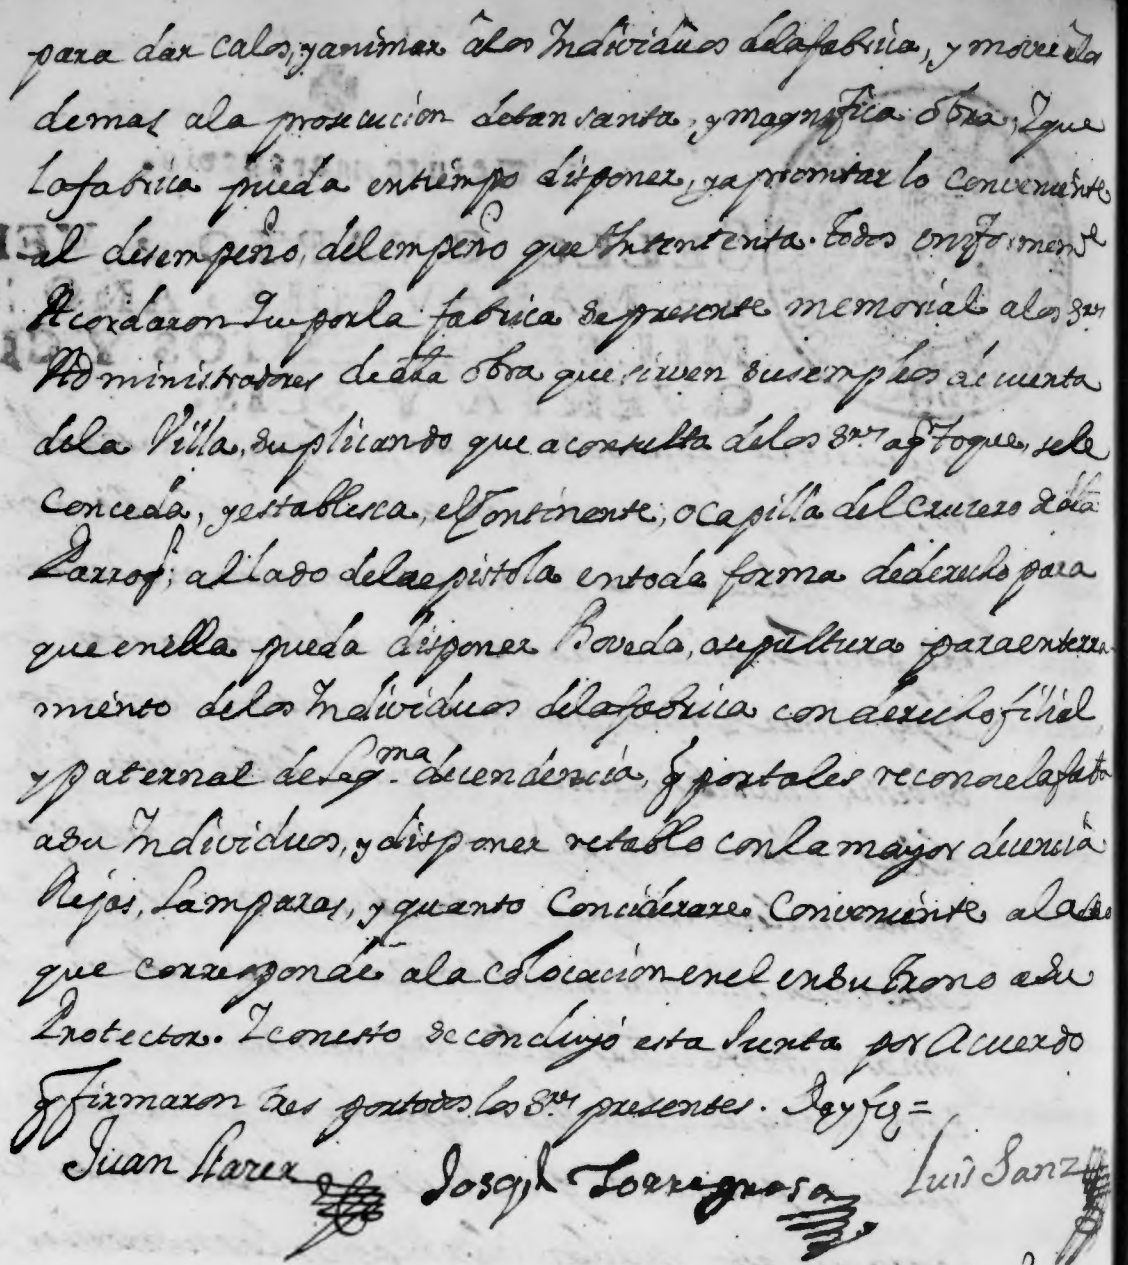 para dar calor, y animar â los Individuos dela fabrica, y mover a los
demas ala prosecucion detan santa, y magnifica obra, Y que
la fabrica pueda entiempo disponer, y apromtar lo conveniente
al desempeño, del empeño que Intententa. todos conformemte
Acordaron Que por la fabrica se presente memorial a los Srs
Administradores de dha obra que sirven sus empleos de cuenta
dela Villa, suplicando que a consulta delos Srs aqn toque, sele
conceda, y establesca, el continente, o capilla del crucero de dha
Parroql, al lado dela epistola en toda forma de derecho para
que en ella pueda disponer Boveda, o sepultura para enterra
miento delos Individuos dela fabrica con derecho filial
y paternal de legma decendencia, q portales reconoce la fabca
a su Individuos, y disponer retablo conla mayor decencia
Rejas, Lamparas, y quanto Conciderare Conveniente ala
que corresponde ala colocacion en el en su trono a su
Protector. Y conesto se concluyó esta Junta por Acuerdo
q firmaron tres portodos los Srs presentes. Doy fe =
Juan Llacer Joseph Torregrosa Luis Sanz